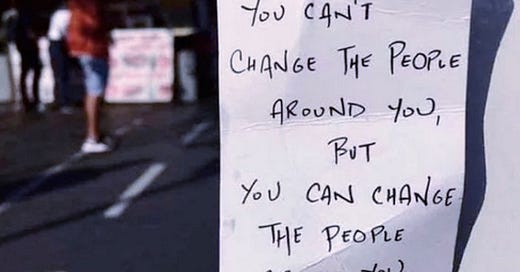 YOU CAN'T
CHANGE THE PEOPLE
AROUND YOU,
BUT
YOU CAN CHANGE
THE PEOPLE